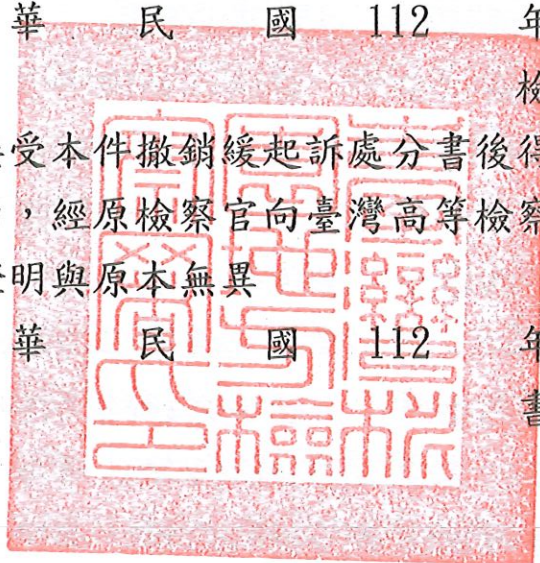 華 民 國 112 年
檢
受本件撤銷緩起訴處分書後得
，經原檢察官向臺灣高等檢察
明與原本無異
華 民 國 112 年
書